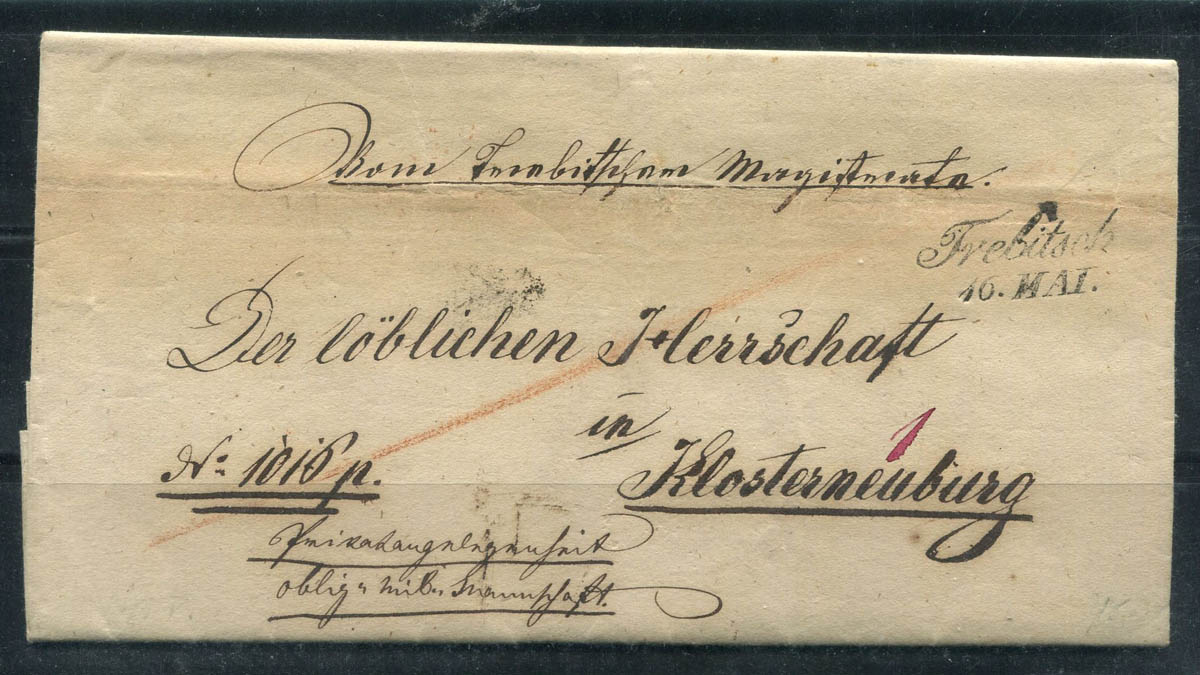 Vom Trebitscher Magistrate.
Trebitsch
16. MAI.
Der löblichen Herrschaft
in
1
Klosterneuburg
No. 1018 p.
Privatangelegenheit
oblig. Mannschaft.